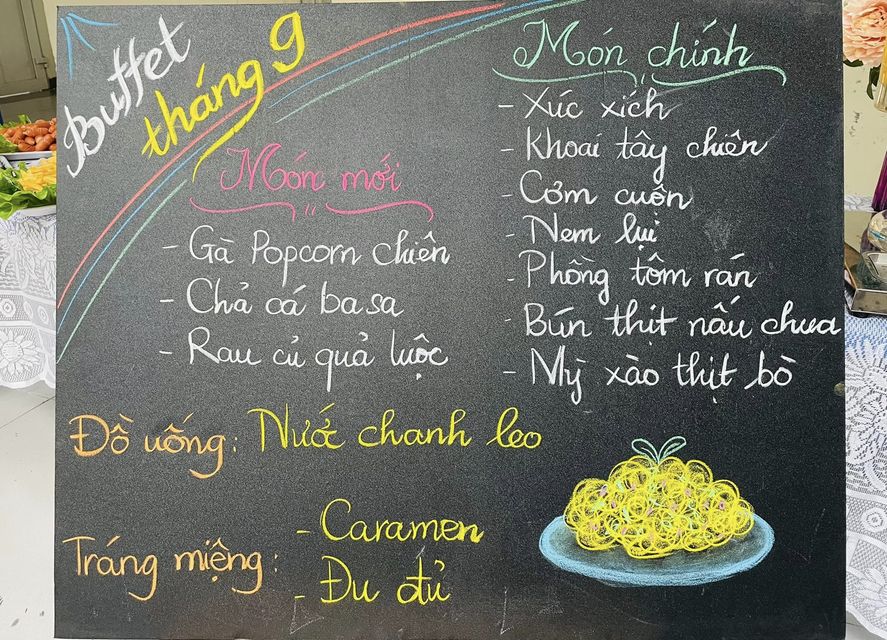 Buffet
tháng 9
Món mới
- Gà Popcorn chiên
- Chả cá basa
- Rau củ quả luộc
Món chính
- Xúc xích
- Khoai tây chiên
- Cơm cuộn
- Nem lụi
- Phồng tôm rán
- Bún thịt nấu chua
- Mỳ xào thịt bò
Đồ uống: Nước chanh leo
Tráng miệng:
- Caramen
- Đu đủ